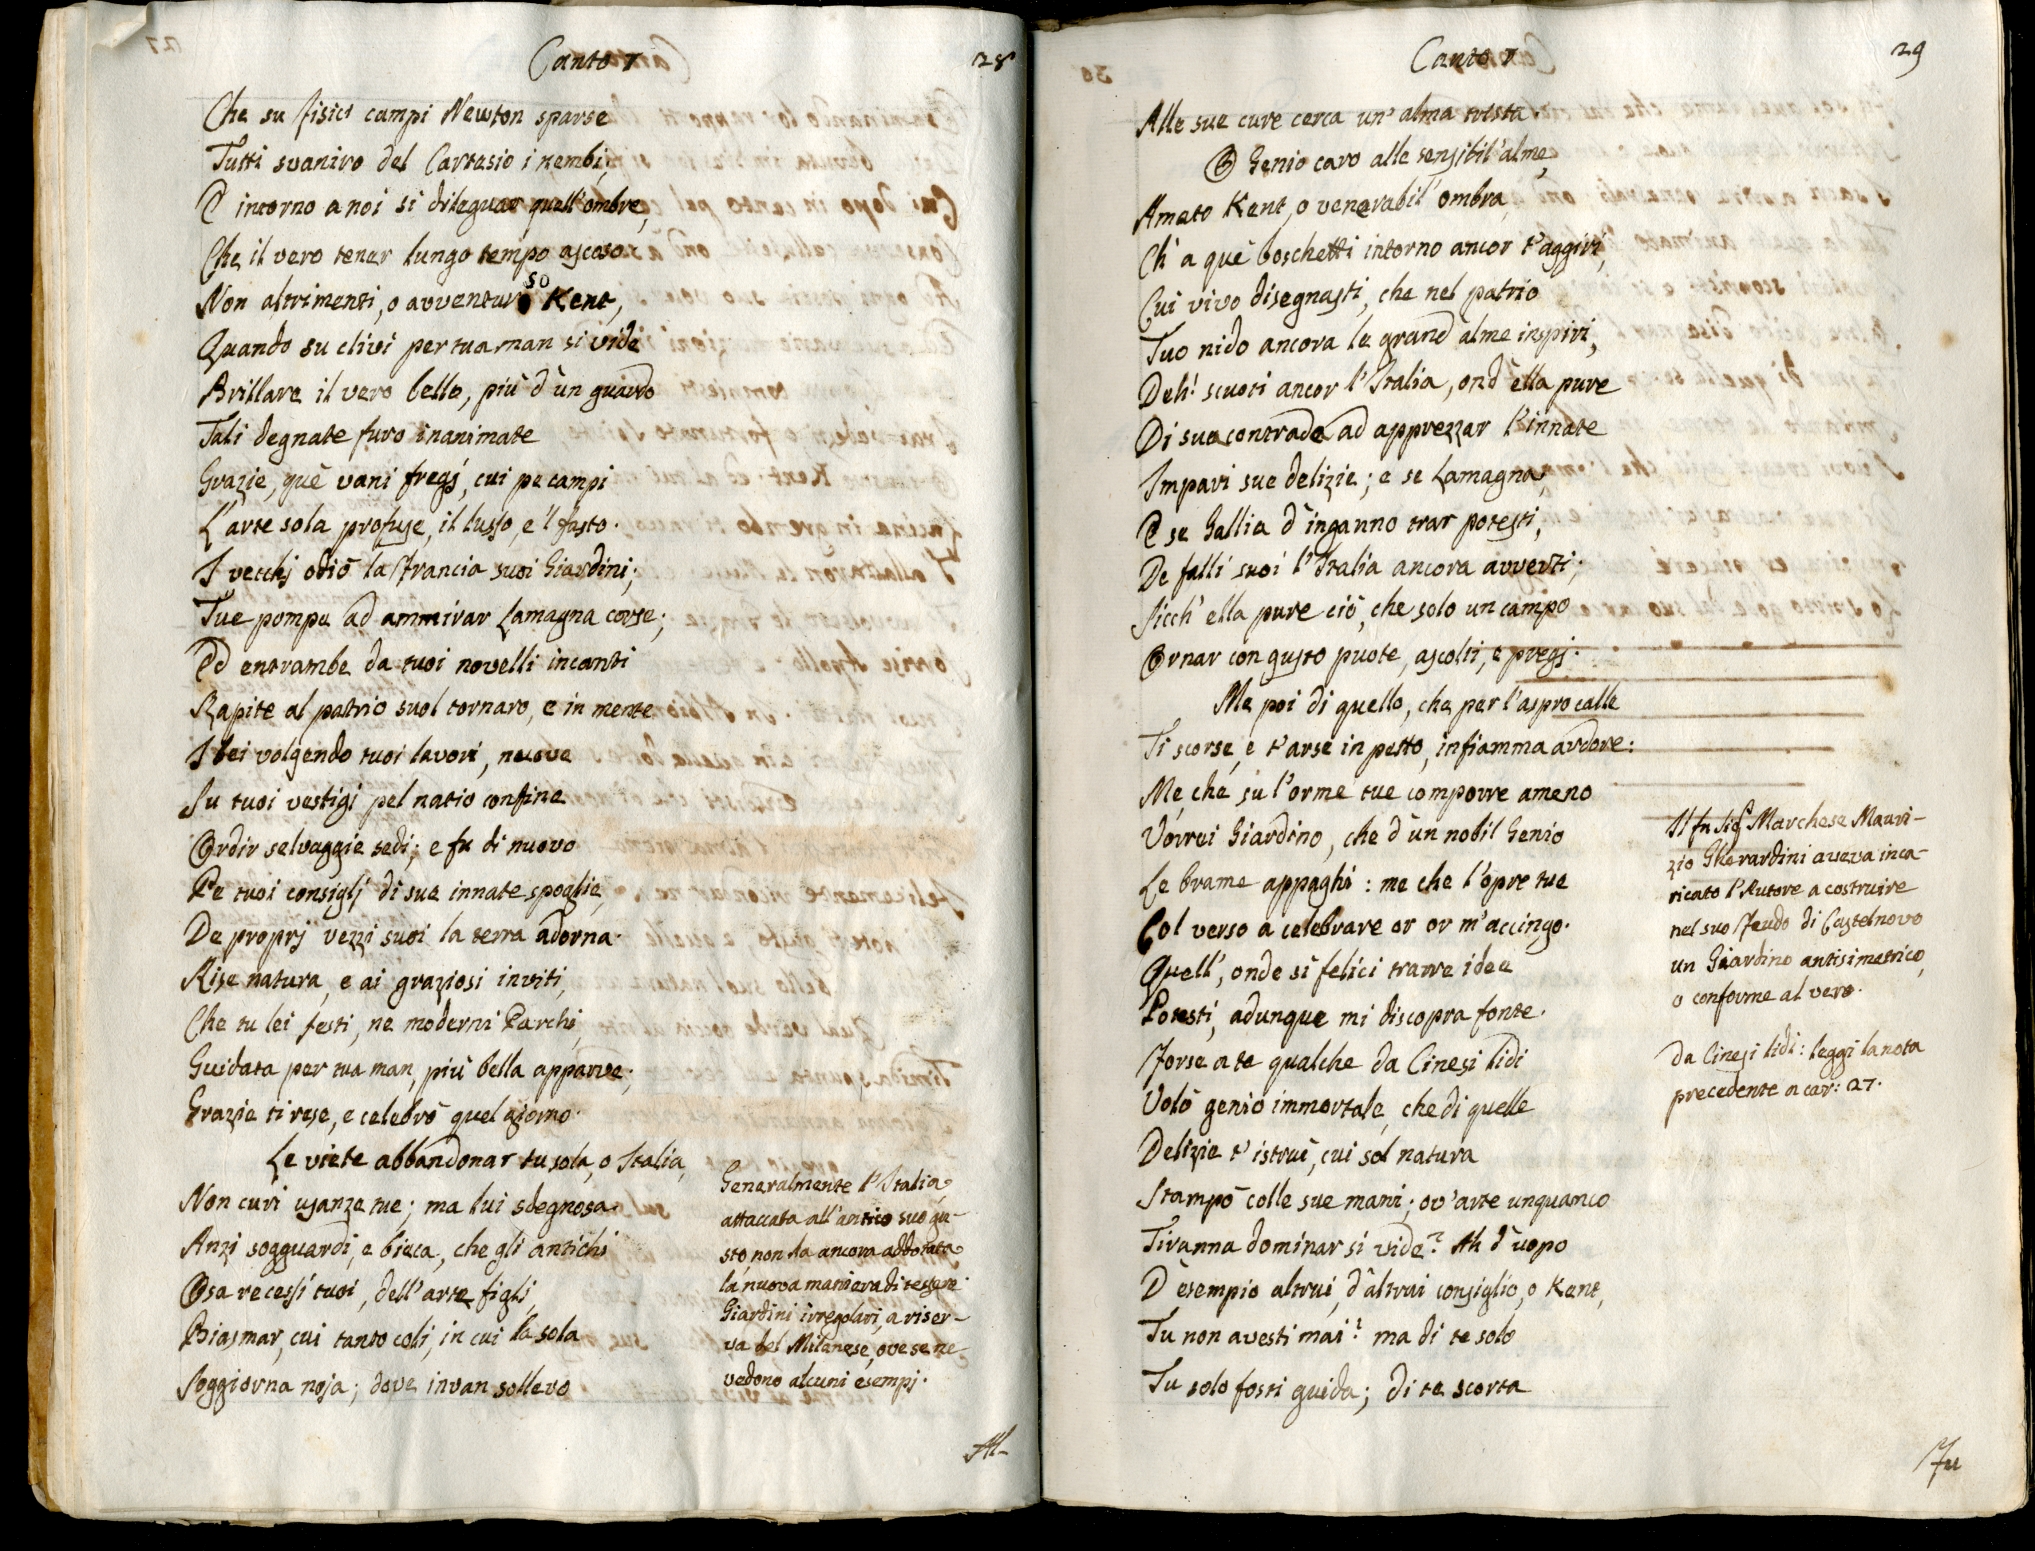 Canto 1
28
Che su fisici campi Newton sparse
Tutti svaniro del Cartesio i nembi,
E intorno a noi si dileguar quell'ombre,
Che il vero tener lungo tempo ascoso.
Non altrimenti, o avventuroso Kent,
Quando su clivi per tua man si vide
Brillare il vero bello, più d'un guardo
Tali degnate furo inanimate
Grazie, què vani fregj, cui pe campi
L'arte sola profuse, il lusso, e 'l fasto.
I vecchj odiò la Francia suoi Giardini;
Tue pompe ad ammirar Lamagna corse;
Ed entrambe da tuoi novelli incanti
Rapite al patrio suol tornaro, e in mente
I bei volgendo tuoi lavori, nuove
Su tuoi vestigi pel natio confine
Ordir selvaggie sedi; e fu di nuovo
Pe tuoi consiglj di sue innate spoglie,
De proprj vezzi suoi la terra adorna.
Rise natura, e ai graziosi inviti,
Che tu lei festi, ne moderni Parchi,
Guidata per tua man, più bella apparve;
Grazie ti rese, e celebrò quel giorno.
Le viete abbandonar tu sola, o Italia,
Non curi usanze tue; ma lui sdegnosa
Anzi sogguardi, e bieca, che gli antichi
Osa recessi tuoi, dell'arte figli,
Biasmar, cui tanto coli, in cui la sola
Soggiorna noja; dove invan sollevo
Generalmente l'Italia
attaccata all'antico suo gu-
sto non ha ancora addotata
la nuova maniera di tessere
Giardini irregolari, a riser-
va del Milanese, ove se ne
vedono alcuni esempj.
Al-
Canto 1
29
Alle sue cure cerca un'alma trista.
O Genio caro alle sensibil'alme,
Amato Kent, o venerabil'ombra,
Ch'a què boschetti intorno ancor t'aggiri,
Cui vivo disegnasti, che nel patrio
Tuo nido ancora le grand'alme inspiri,
Deh! scuoti ancor l'Italia, ond'ella pure
Di sue contrade ad apprezzar l'innate
Impari sue delizie; e se Lamagna,
E se Gallia d'inganno trar potesti,
De falli suoi l'Italia ancora avverti;
Sicch'ella pure ciò, che solo un campo
Ornar con gusto puote, ascolti, e pregj.
Me poi di quello, che per l'aspro calle
Ti scorse, e t'arse in petto, infiamma ardore:
Me che su l'orme tue comporre ameno
Vorrei Giardino, che d'un nobil Genio
Le brame appaghi: me che l'opre tue
Col verso a celebrare or or m'accingo.
Quell', onde sì felici trarre idee
Potesti, adunque mi discopra fonte.
Forse a te qualche da Cinesi lidi
Volò genio immortale, che di quelle
Delizie t'istruì, cui sol natura
Stampò colle sue mani; ov'arte unquanco
Tiranna dominar si vide? Ah d'uopo
D'esempio altrui, d'altrui consiglio, o Kent,
Tu non avesti mai? ma di te solo
Tu solo fosti guida; di te scorta
Il fu Sigr Marchese Mauri-
zio Gherardini aveva inca-
ricato l'Autore a costruire
nel suo Feudo di Castelnovo
un Giardino antisimetrico,
o conforme al vero.
Da Cinesi lidi: leggi la nota
precedente a car: 27.
Fu